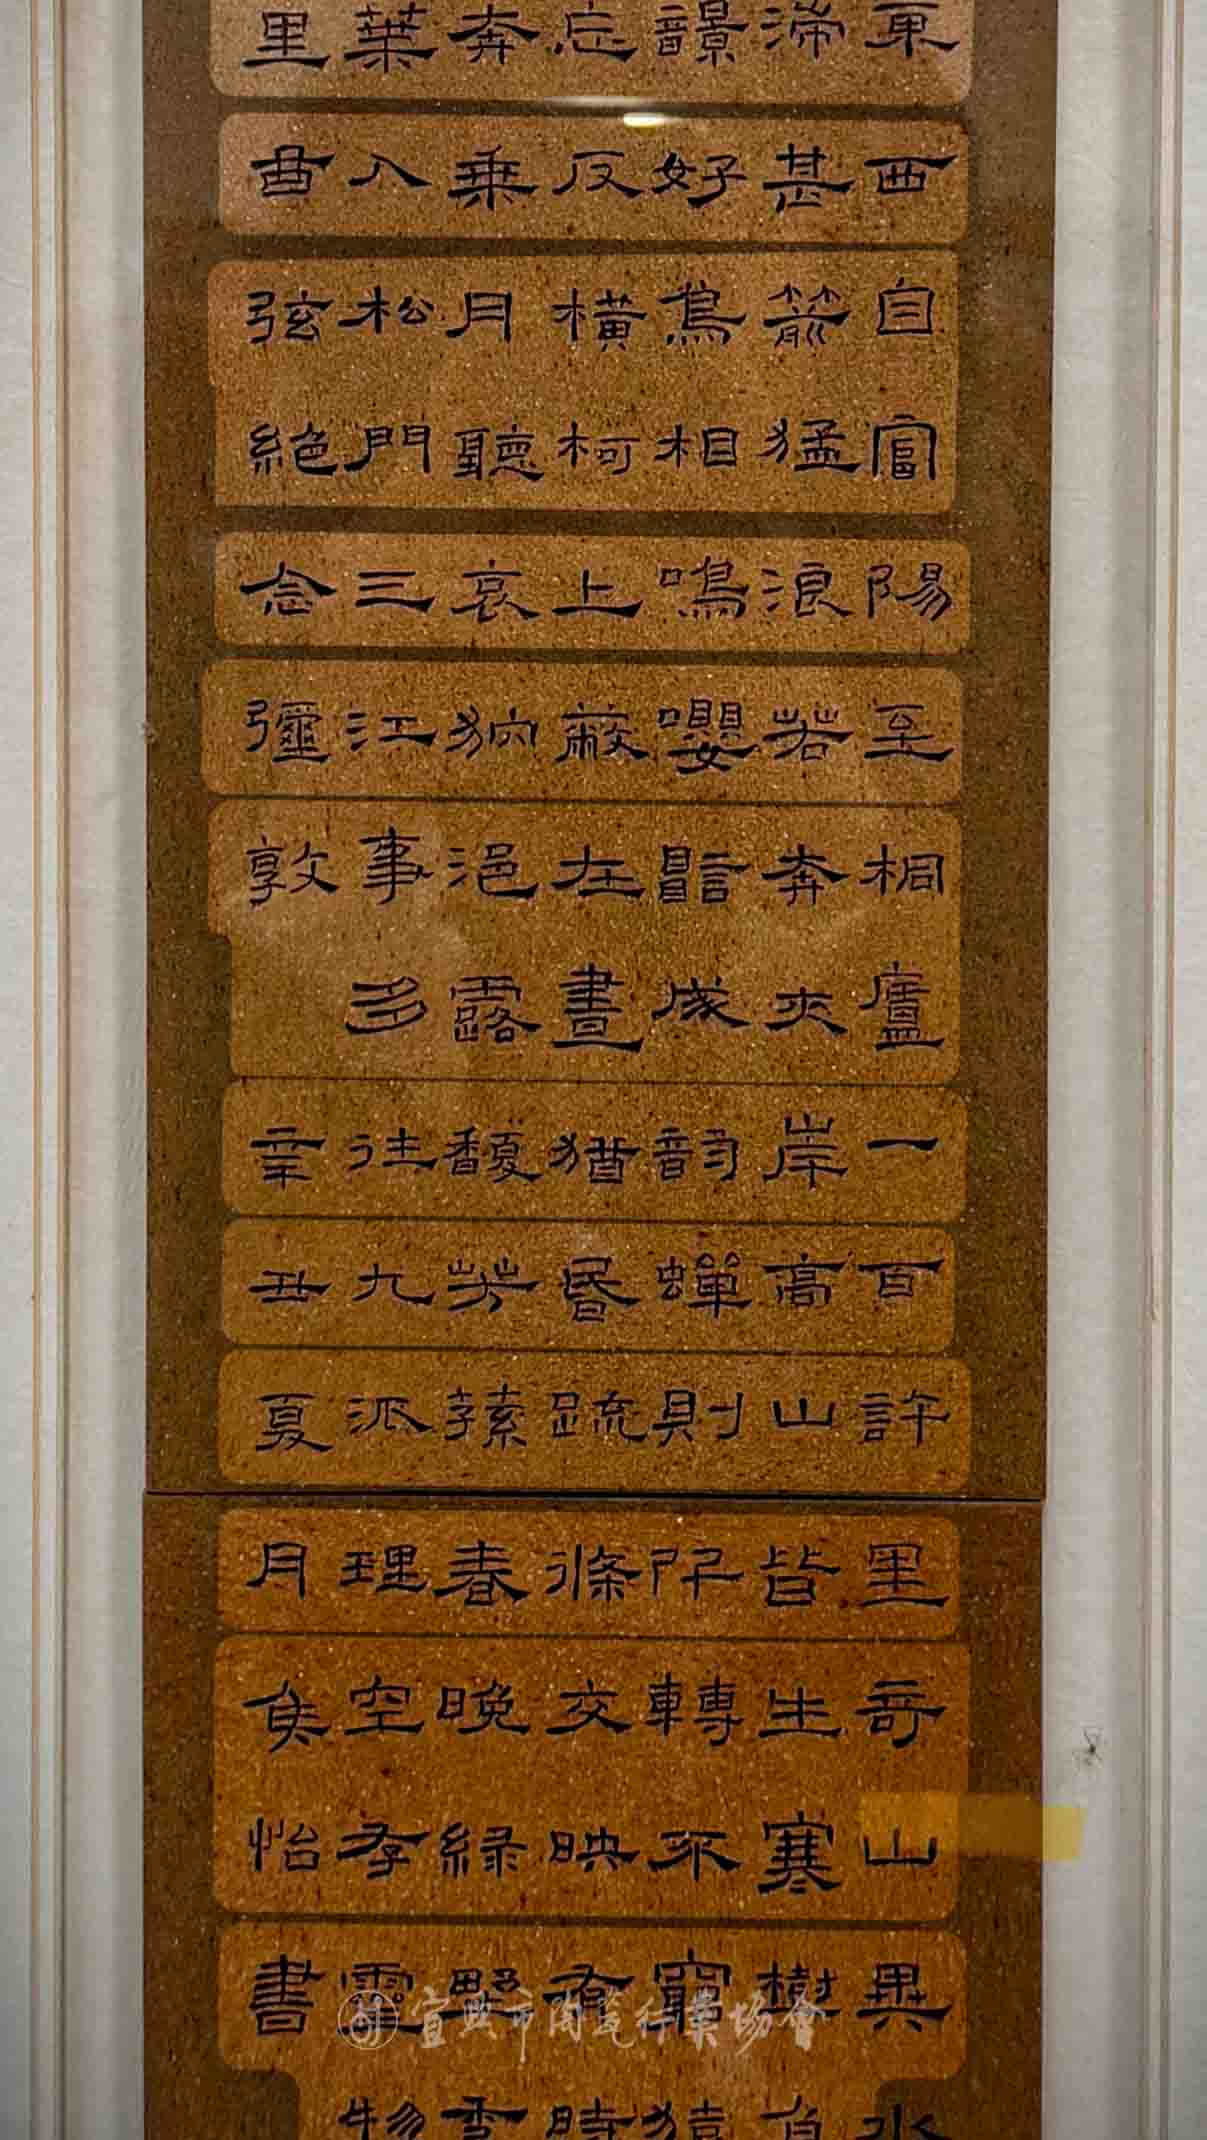 東西自富陽至桐廬一百許里奇山異水
湍甚箭猛浪若奔夾岸高山皆生寒樹負
好鳥相鳴嚶譻成韵蟬則阡轉不窮猿
忘反橫柯上蔽在晝猶昏疏條交映有時
奔乘月聽哀狖浥露馥芳蓀春晚綠野秀
葉入松門三江事多往九派理空存靈物
里曲弦絕念彌敦辛丑夏月侯怡書
宜興市陶瓷行業協會